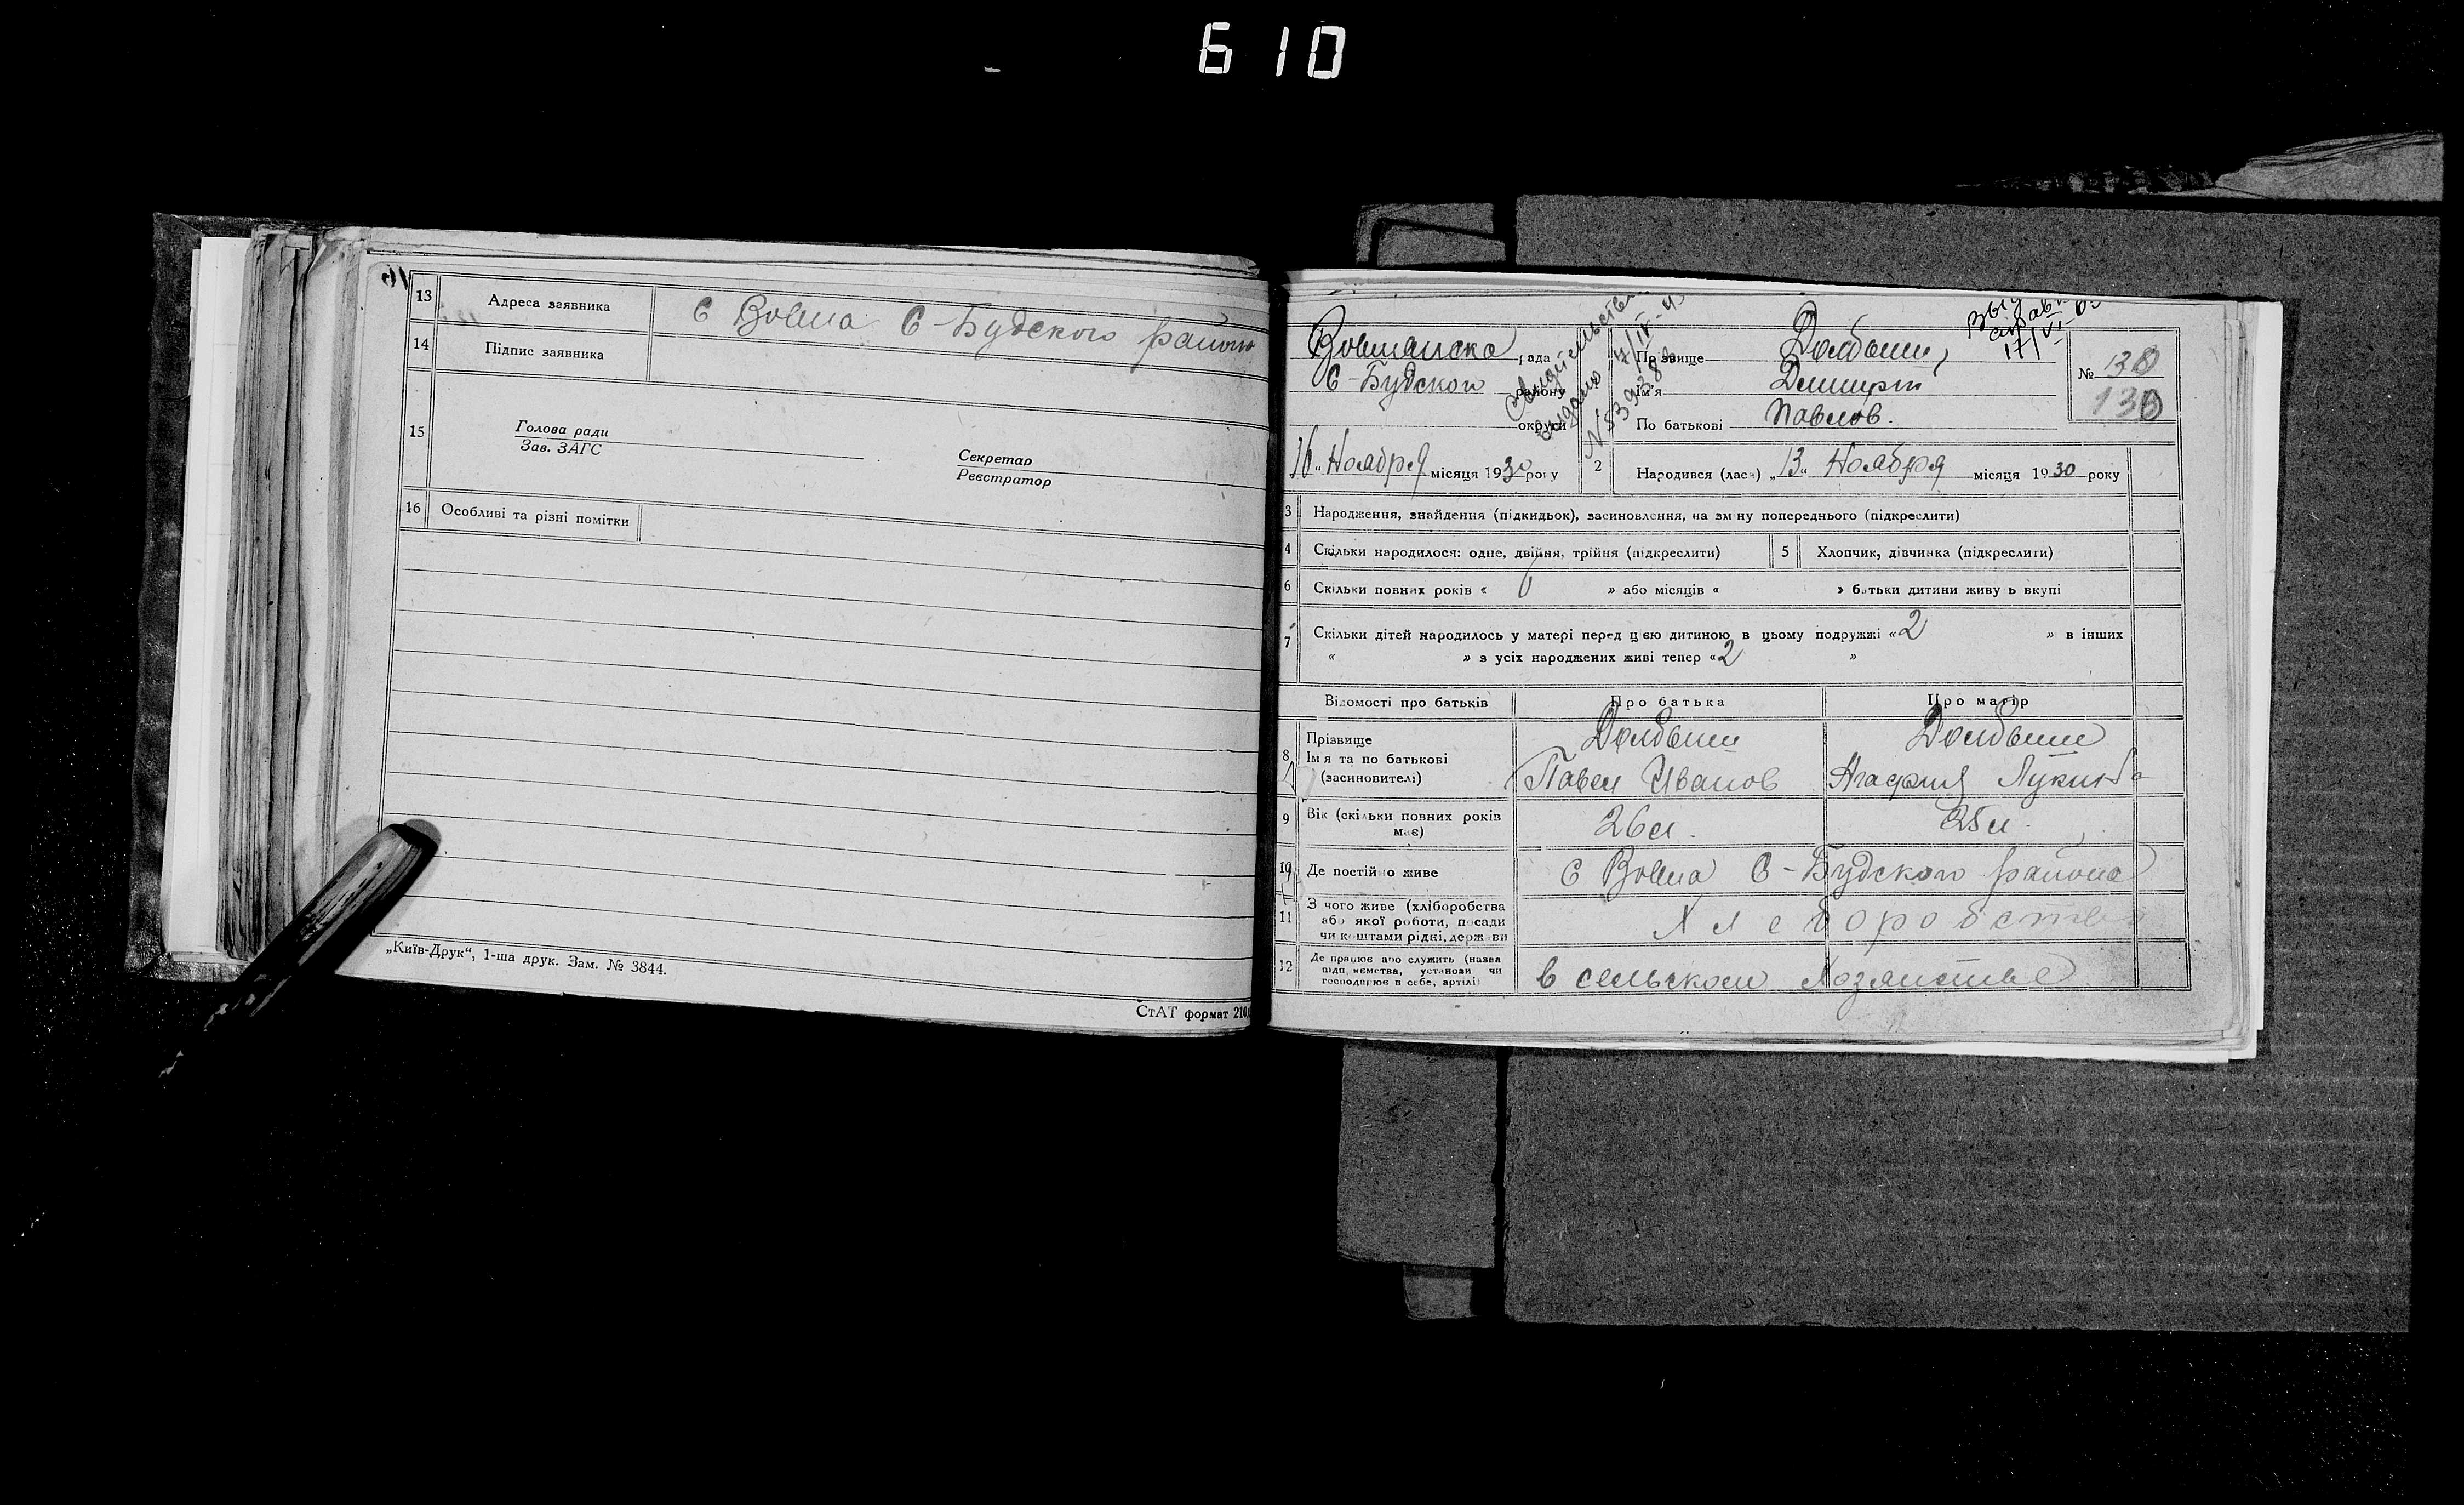 610
13 Адреса заявника С Вовна С-Будского району
14 Підпис заявника
15 Голова ради
Зав. ЗАГС
Секретар
Реєстратор
16 Особливі та різні помітки
„Київ-Друк“, 1-ша друк. Зам. № 3844.
СтАТ формат 210
рада
С-Будского району
округи
16 „ Ноября місяця 1930 року
Свидетельство
выдано 4/IV-4
17/VI-63
Прізвище Долбыш
Ім'я Дмитрий
По батькові Павлов.
№ 130
130
2 Народився (лась) „13“ Ноября місяця 1930 року
3 Народження, знайдення (підкидьок), засиновлення, на зміну попереднього (підкреслити)
4 Скільки народилося: одне, двійня, трійня (підкреслити) 5 Хлопчик, дівчинка (підкреслити)
6 Скільки повних років « 6 » або місяців « » батьки дитини живуть вкупі
7 Скільки дітей народилось у матері перед цією дитиною в цьому подружжі «2 » в інших
« » з усіх народжених живі тепер «2 »
Відомості про батьків Про батька Про матір
8 Прізвище Долбыш Долбыш
Ім'я та по батькові Павел Иванов Агафия Лукин
(засиновителі)
9 Вік (скільки повних років має) 26 л. 25 л.
10 Де постійно живе С Вовна С-Будского района
11 З чого живе (хліборобства
або якої роботи, посади
чи коштами рідні, держави
Хлеборобства
12 Де працює або служить (назва
підприємства, установи чи
господарює в себе, артілі)
в сельском хозяистве